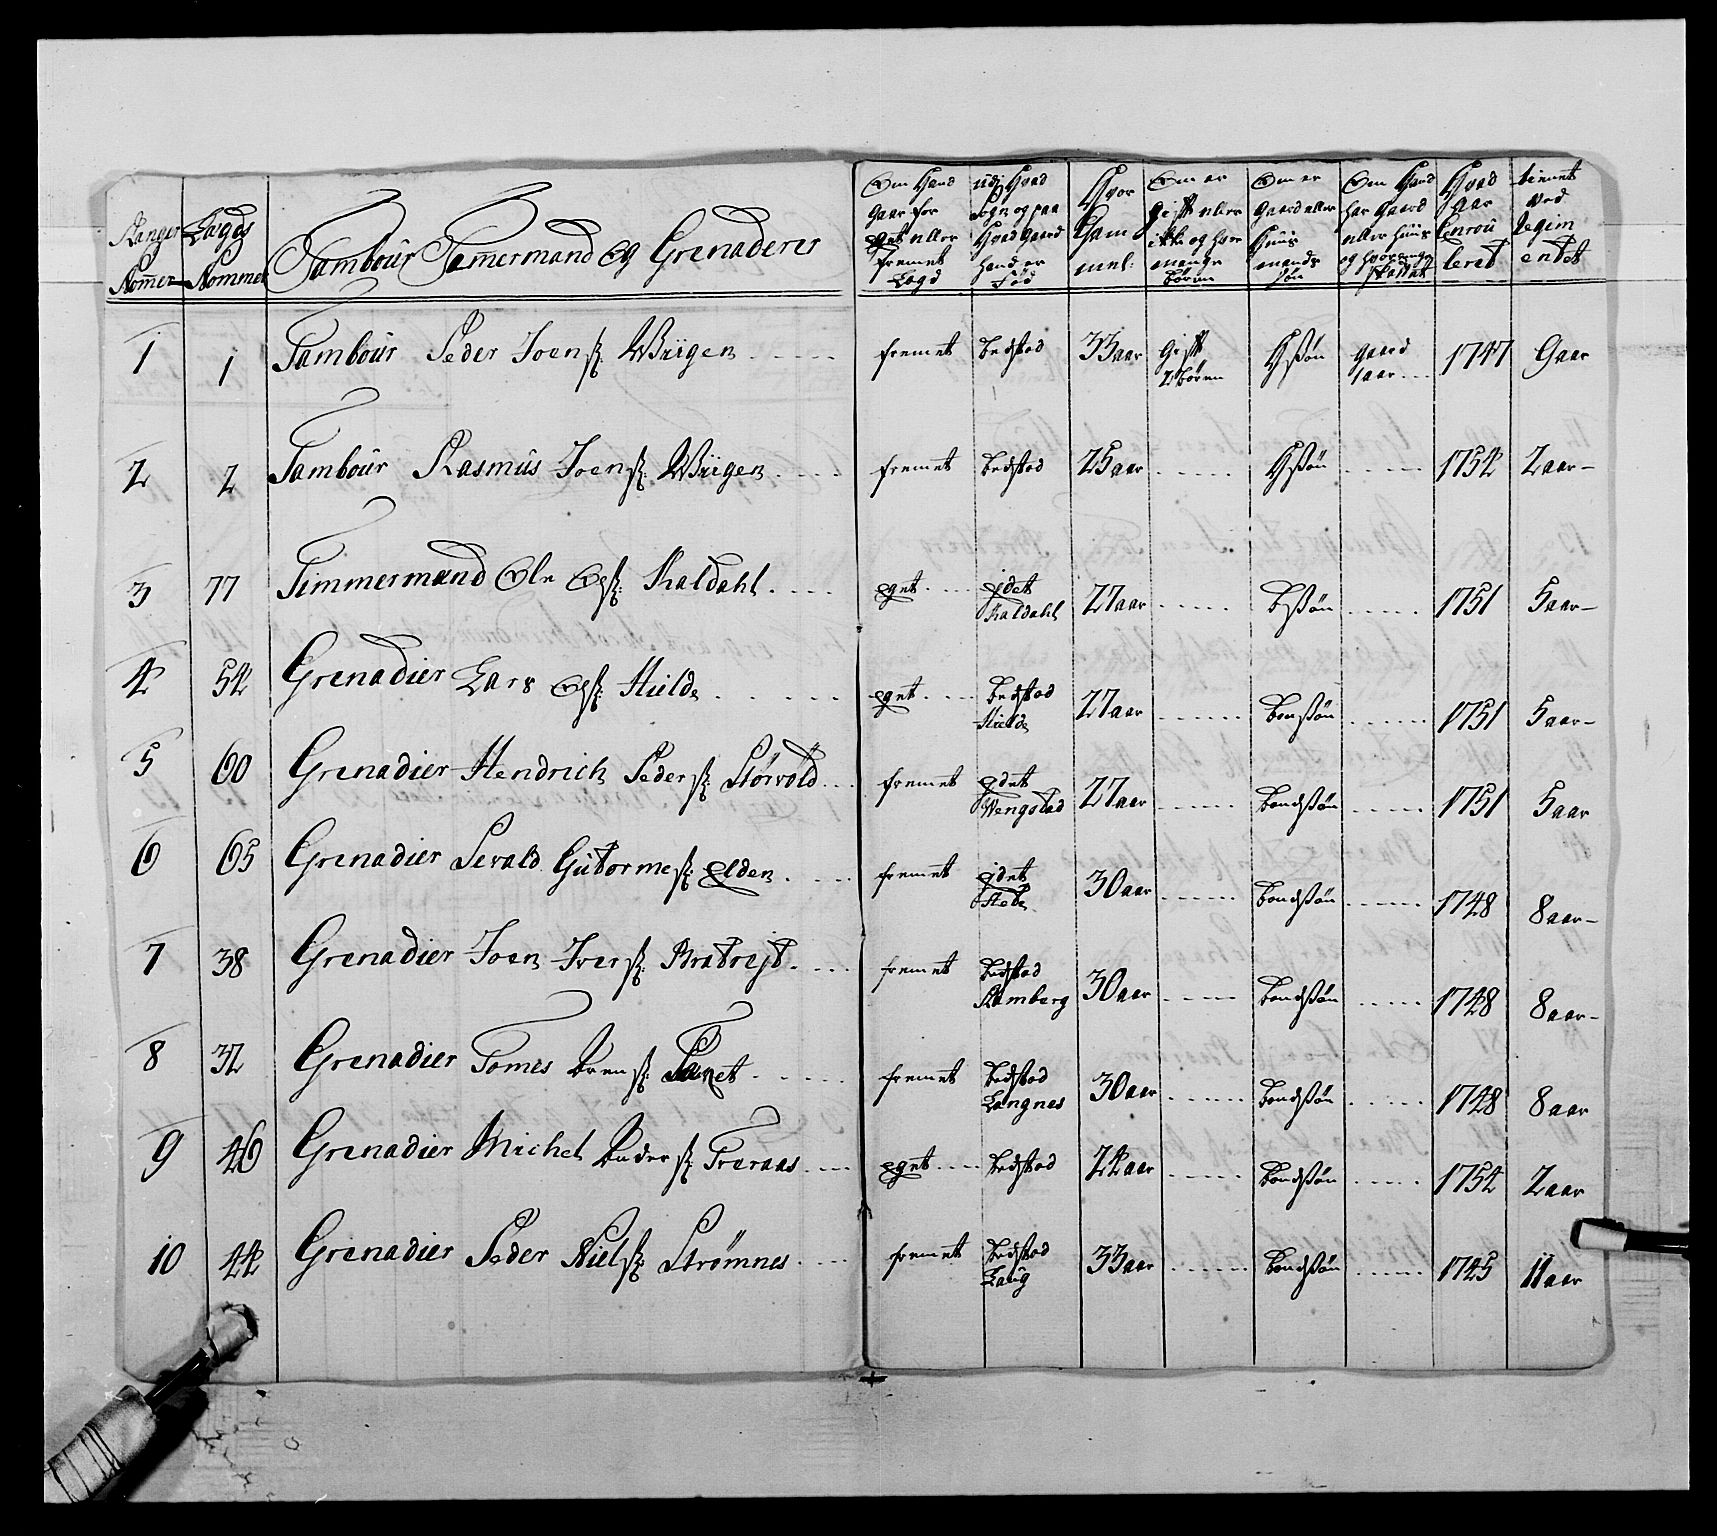 Ranger Nomer
Lægds Nommer
Tambour Tømermand og Grenaderer
Om Hand gaar for eget eller fremet Legd
udj Hvad Sogn og paa Hvad gaard hand er Fød
Hvor Gammel:
Om er gift eller ikke og hvor mange børen
Om er gaard eller Huus mands søn
Om Hand har gaard eller Huus og hvor
Hvad aar Enroulleret
tiennet ved Regimentet
1 1 Tambour Peder Joens: Wiigen fremet bedstad 33 aar gift 2 børen Hssøn gaard 1 aar 1747 9 aar
2 2 Tambour Rasmus Joens: Wiigen fremet bedstad 25 aar Hssøn 1754 2 aar
3 77 Timmermand Ole Ols: Kaldahl eget Ejdet Kaldahl 27 aar bssøn 1751 5 aar
4 54 Grenadier Lars Ols: Hielde eget bedstad Hielde 27 aar bonssøn 1751 5 aar
5 60 Grenadier Hendrich Peders: Størvold fremet Ejdet Wengstad 27 aar bondssøn 1751 5 aar
6 65 Grenadier Sevald Gutormes: Elden fremet Ejdet 30 aar bondssøn 1748 8 aar
7 38 Grenadier Joen Ivers: Bratrejt fremet bedstad Ramberg 30 aar bondssøn 1748 8 aar
8 32 Grenadier Tomes fremet bedstad Langnes 30 aar bondssøn 1748 8 aar
9 46 Grenadier Michel Anders: Treraas eget bedstad 24 aar bondssøn 1754 2 aar
10 44 Grenadier Peder Niels: Strømnes fremet bedstad Laug 33 aar bondssøn 1745 11 aar